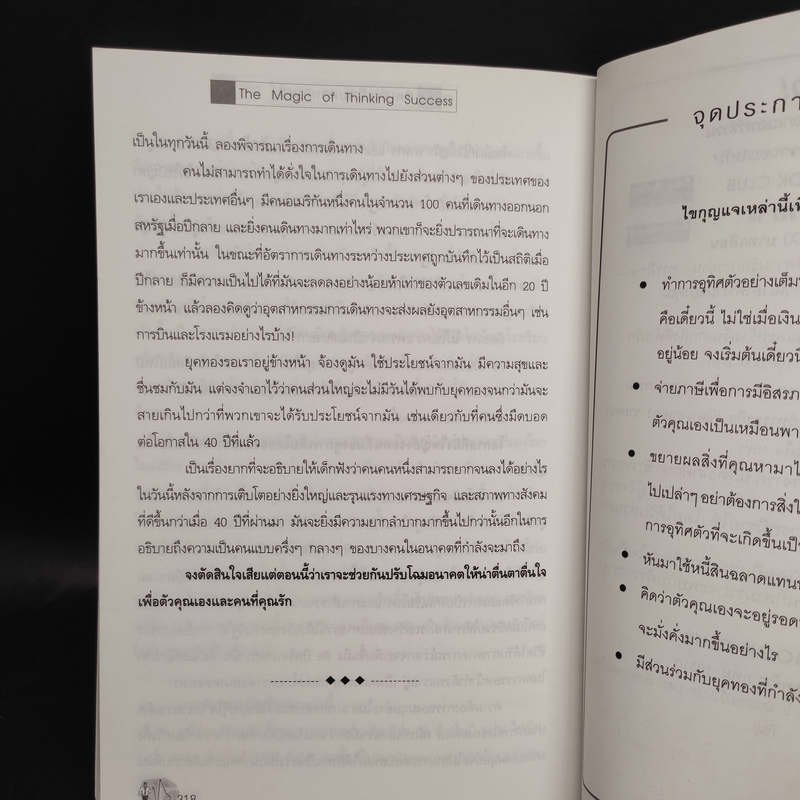 The Magic of Thinking Success
เป็นในทุกวันนี้ ลองพิจารณาเรื่องการเดินทาง
คนไม่สามารถทำได้ดั่งใจในการเดินทางไปยังส่วนต่างๆ ของประเทศของ
เราเองและประเทศอื่นๆ มีคนอเมริกันหนึ่งคนในจำนวน 100 คนที่เดินทางออกนอก
สหรัฐเมื่อปีกลาย และยิ่งคนเดินทางมากเท่าไหร่ พวกเขาก็จะยิ่งปรารถนาที่จะเดินทาง
มากขึ้นเท่านั้น ในขณะที่อัตราการเดินทางระหว่างประเทศถูกบันทึกไว้เป็นสถิติเมื่อ
ปีกลาย ก็มีความเป็นไปได้ที่มันจะลดลงอย่างน้อยห้าเท่าของตัวเลขเดิมในอีก 20 ปี
ข้างหน้า แล้วลองคิดดูว่าอุตสาหกรรมการเดินทางจะส่งผลยังอุตสาหกรรมอื่นๆ เช่น
การบินและโรงแรมอย่างไรบ้าง!
ยุคทองรอเราอยู่ข้างหน้า จ้องดูมัน ใช้ประโยชน์จากมัน มีความสุขและ
ชื่นชมกับมัน แต่จงจำเอาไว้ว่าคนส่วนใหญ่จะไม่มีวันได้พบกับยุคทองจนกว่ามันจะ
สายเกินไปกว่าที่พวกเขาจะได้รับประโยชน์จากมัน เช่นเดียวกับที่คนซึ่งมืดบอด
ต่อโอกาสใน 40 ปีที่แล้ว
เป็นเรื่องยากที่จะอธิบายให้เด็กฟังว่าคนคนหนึ่งสามารถยากจนลงได้อย่างไร
ในวันนี้หลังจากการเติบโตอย่างยิ่งใหญ่และรุนแรงทางเศรษฐกิจ และสภาพทางสังคม
ที่ดีขึ้นกว่าเมื่อ 40 ปีที่ผ่านมา มันจะยิ่งมีความยากลำบากมากขึ้นไปกว่านั้นอีกในการ
อธิบายถึงความเป็นคนแบบครึ่งๆ กลางๆ ของบางคนในอนาคตที่กำลังจะมาถึง
จงตัดสินใจเสียแต่ตอนนี้ว่าเราจะช่วยกันปรับโฉมอนาคตให้น่าตื่นตาตื่นใจ
เพื่อตัวคุณเองและคนที่คุณรัก
218
จุดประกา
ไขกุญแจเหล่านี้เพื
• ทำการอุทิศตัวอย่างเต็ม
คือเดี๋ยวนี้ ไม่ใช่เมื่อเงิน
อยู่น้อย จงเริ่มต้นเดี๋ยวนี
• จ่ายภาษีเพื่อการมีอิสรภ
ตัวคุณเองเป็นเหมือนพา
• ขยายผลสิ่งที่คุณหามาไ
ไปเปล่าๆ อย่าต้องการสิ่งใ
การอุทิศตัวที่จะเกิดขึ้นเป็
• หันมาใช้หนี้สินฉลาดแทนห
• คิดว่าตัวคุณเองจะอยู่รอด
จะมั่งคั่งมากขึ้นอย่างไร
• มีส่วนร่วมกับยุคทองที่กำลั